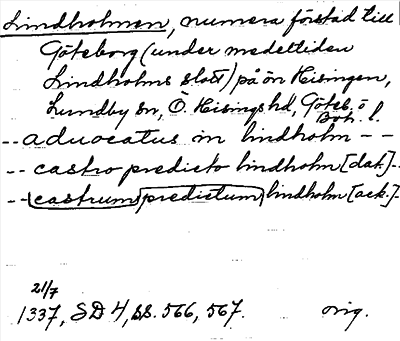 Lindholmen, numera förstad till
Göteborg (under medeltiden
Lindholms slott) på ön Hisingen,
Lundby sn, Ö. Hisings hd, Göteb. o
Boh. l.
-- advocatus in lindholm --
-- castro predicto lindholm [dat.] --
-- castrum predictum lindholm [ack.] --
21/7
1337, SD 4, ss. 566, 567. orig.